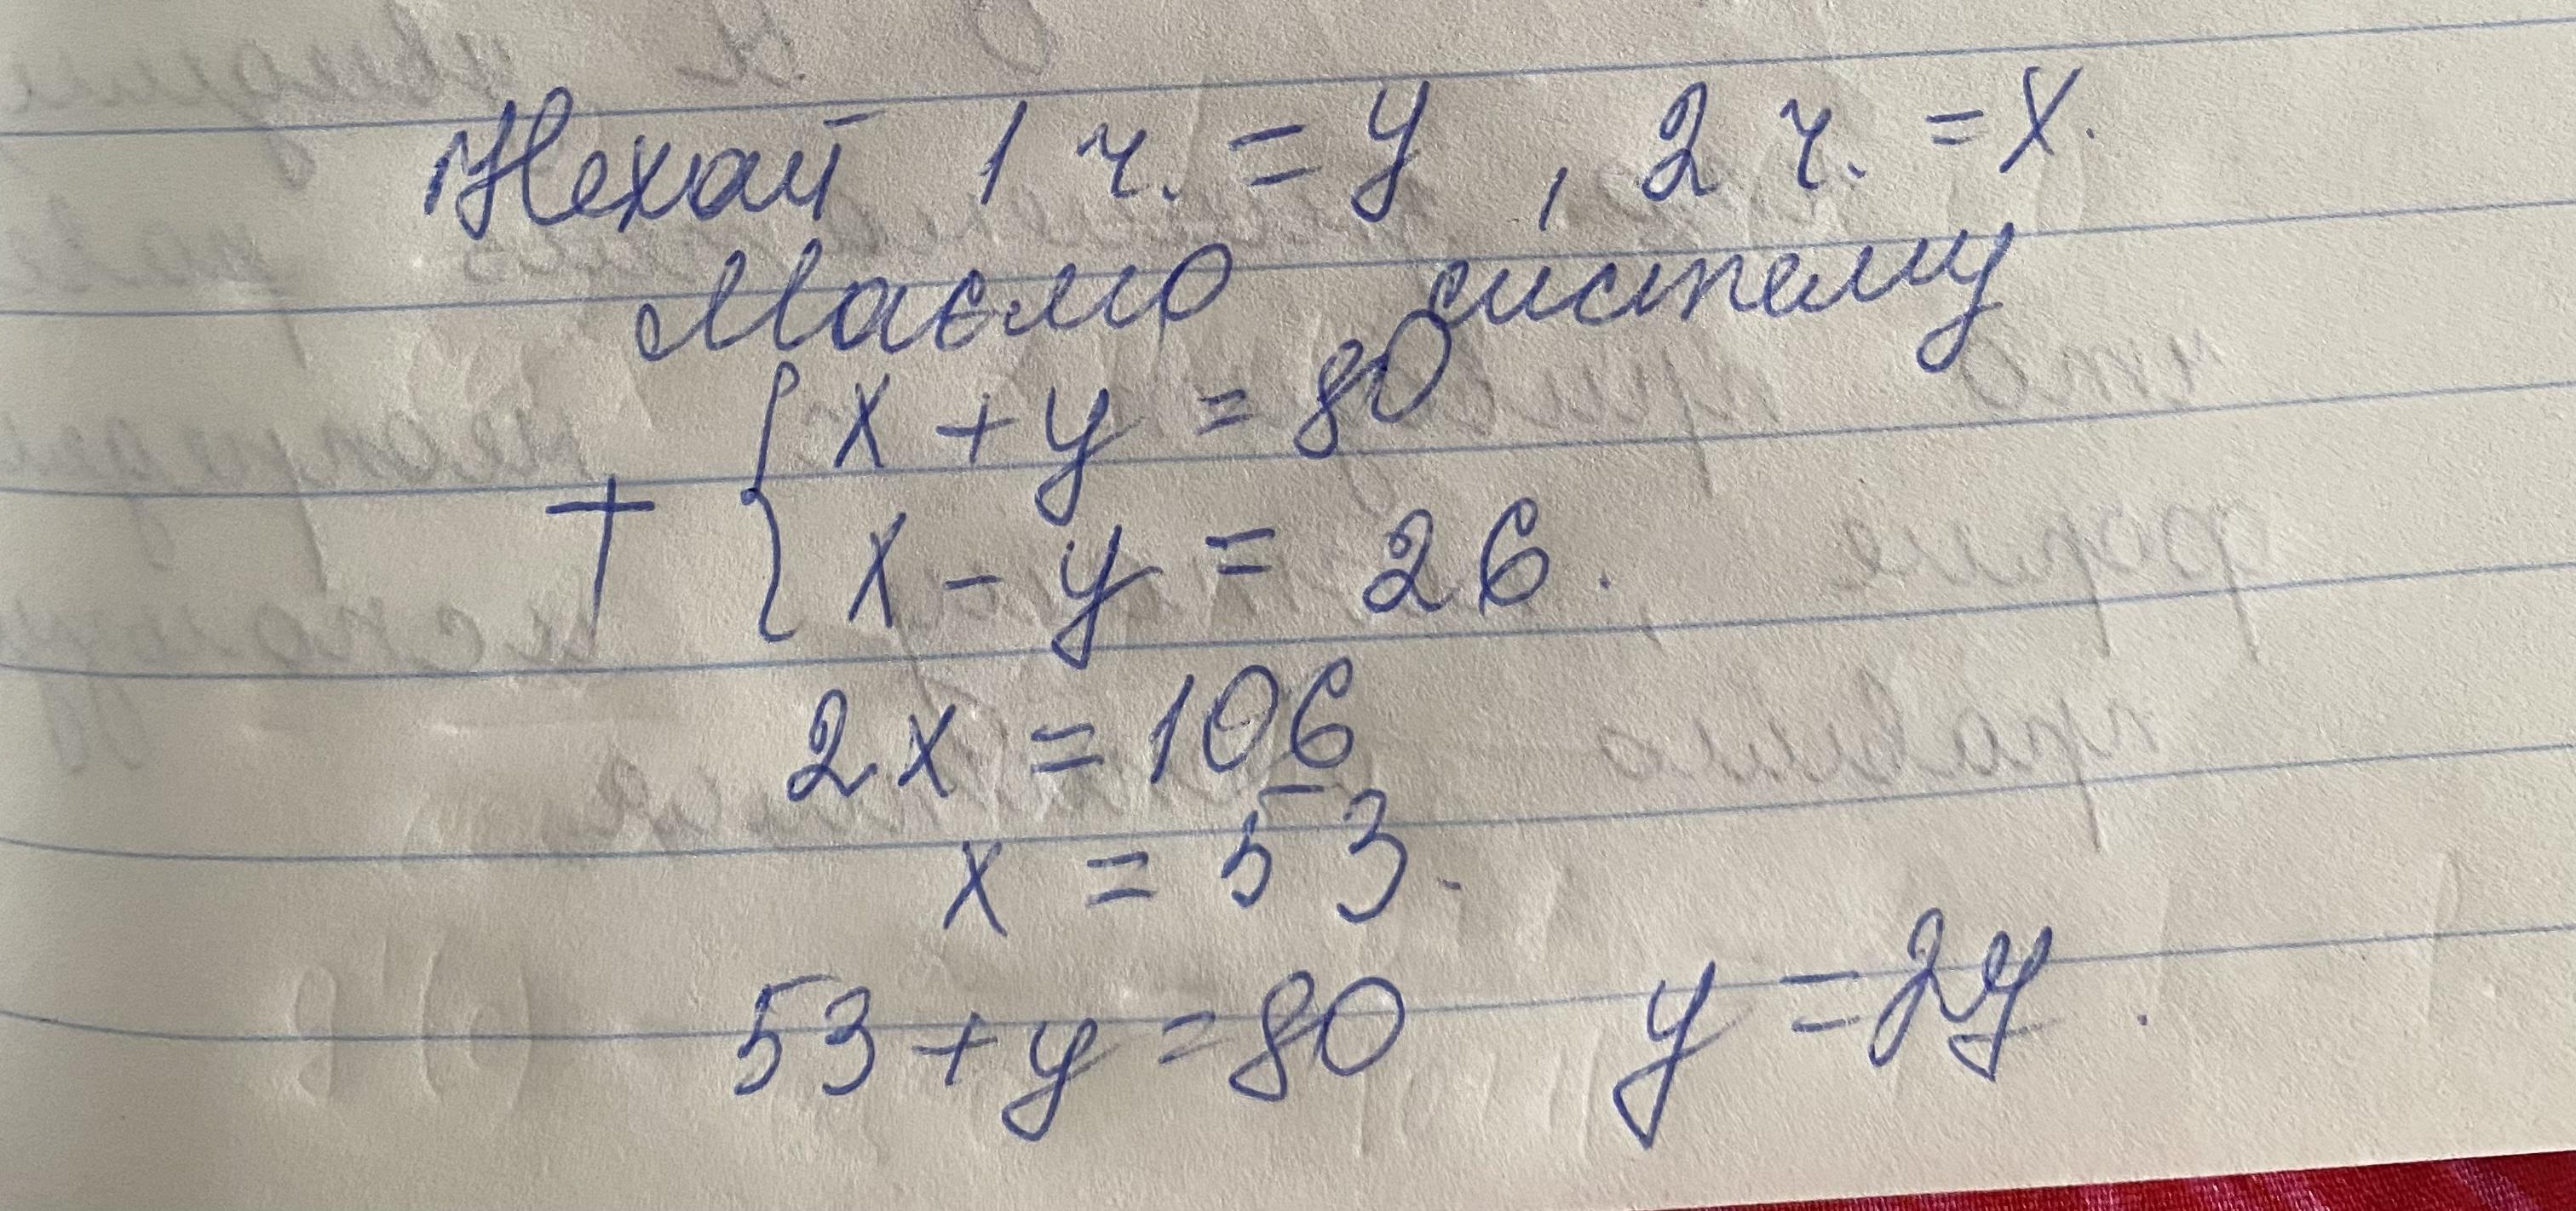 Нехай 1 ч. = y, 2 ч. = x.
Маємо систему
+ { x + y = 80
x - y = 26.
2x = 106
x = 53.
53 + y = 80 y = 27.